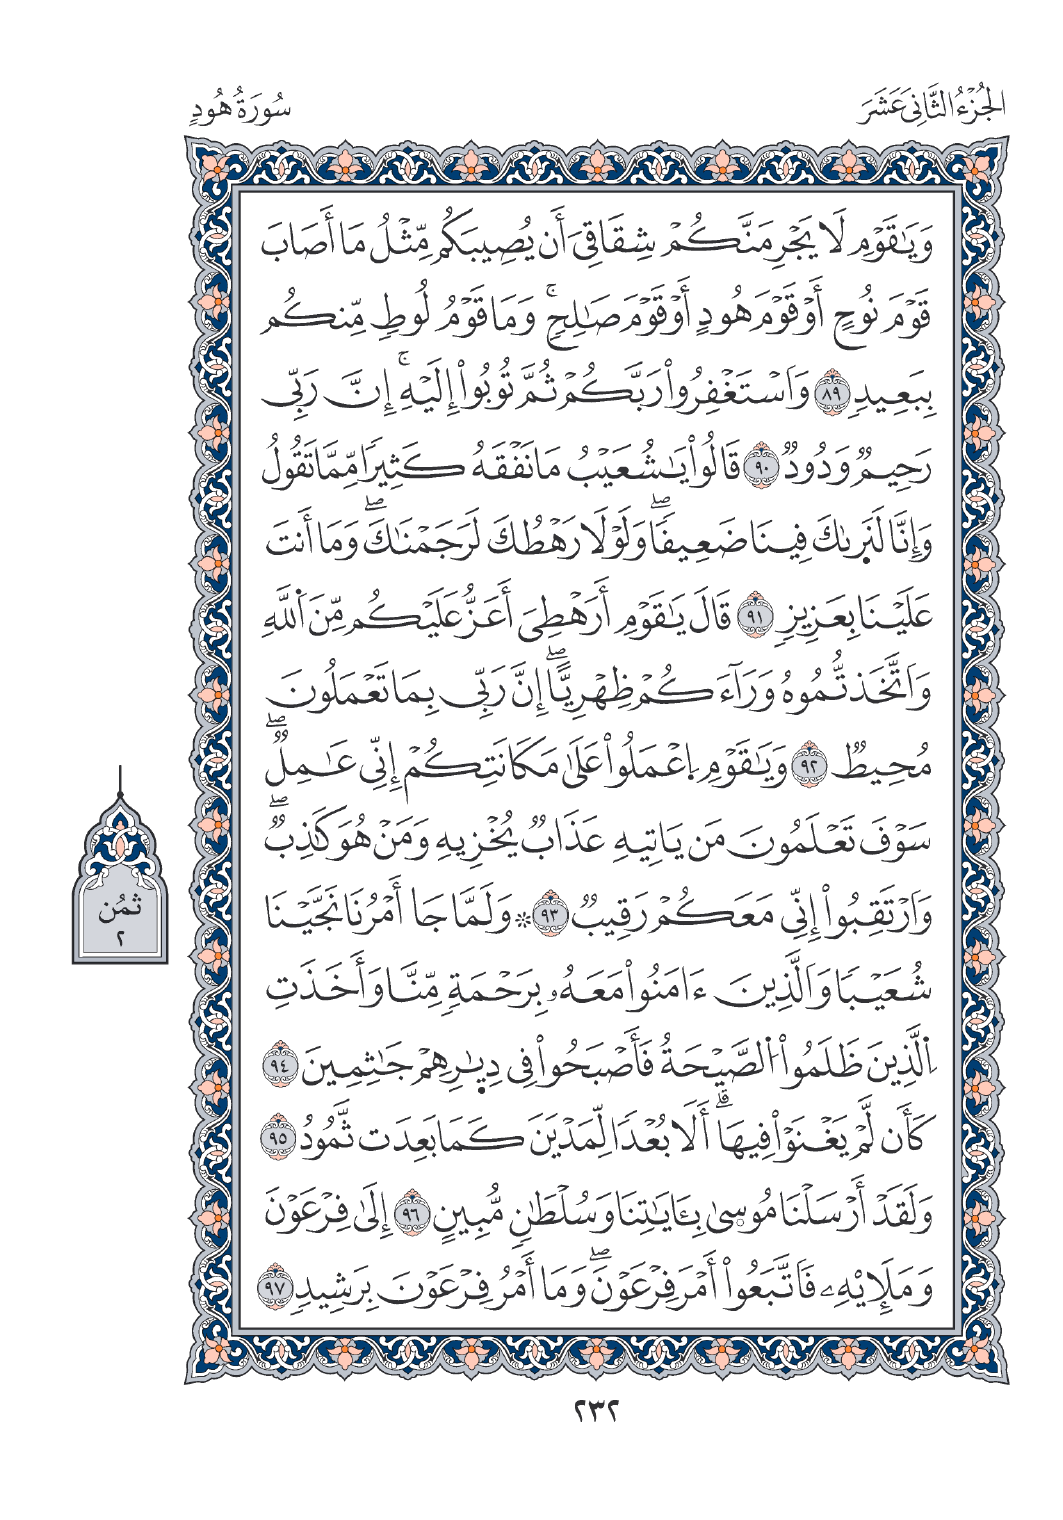 الجُزْءُ الثَّانِيَ عَشَرَ
سُورَةُ هُودٍ
وَيَٰقَوْمِ لَا يَجْرِمَنَّكُمْ شِقَاقِيَ أَن يُصِيبَكُم مِّثْلُ مَا أَصَابَ
قَوْمَ نُوحٍ أَوْ قَوْمَ هُودٍ أَوْ قَوْمَ صَٰلِحٖۚ وَمَا قَوْمُ لُوطٖ مِّنكُم
بِبَعِيدٖ ٨٩ وَاَسْتَغْفِرُواْ رَبَّكُمْ ثُمَّ تُوبُواْ إِلَيْهِۚ إِنَّ رَبِّي
رَحِيمٞ وَدُودٞ ٩٠ قَالُواْ يَٰشُعَيْبُ مَا نَفْقَهُ كَثِيرٗا مِّمَّا تَقُولُ
وَإِنَّا لَنَر۪ىٰكَ فِينَا ضَعِيفٗاۖ وَلَوْلَا رَهْطُكَ لَرَجَمْنَٰكَۖ وَمَا أَنتَ
عَلَيْنَا بِعَزِيزٖ ٩١ قَالَ يَٰقَوْمِ أَرَهْطِيَ أَعَزُّ عَلَيْكُم مِّنَ اَ۬للَّهِ
وَاَتَّخَذتُّمُوهُ وَرَآءَكُمْ ظِهْرِيًّاۖ إِنَّ رَبِّي بِمَا تَعْمَلُونَ
مُحِيطٞ ٩٢ وَيَٰقَوْمِ اِ۪عْمَلُواْ عَلَىٰ مَكَانَتِكُمْ إِنِّي عَٰمِلٞۖ
سَوْفَ تَعْلَمُونَ مَن يَاتِيهِ عَذَابٞ يُخْزِيهِ وَمَنْ هُوَ كَٰذِبٞۖ
وَاَرْتَقِبُواْ إِنِّي مَعَكُمْ رَقِيبٞ ٩٣ ۞ وَلَمَّا جَا أَمْرُنَا نَجَّيْنَا
شُعَيْبٗا وَاَلَّذِينَ ءَامَنُواْ مَعَهُۥ بِرَحْمَةٖ مِّنَّا وَأَخَذَتِ
اِ۬لَّذِينَ ظَلَمُواْ اُ۬لصَّيْحَةُ فَأَصْبَحُواْ فِي دِيٰ۪رِهِمْ جَٰثِمِينَ ٩٤
كَأَن لَّمْ يَغْنَوْاْ فِيهَاۗ أَلَا بُعْدٗا لِّمَدْيَنَ كَمَا بَعِدَت ثَّمُودُ ٩٥
وَلَقَدْ أَرْسَلْنَا مُوس۪ىٰ بِـَٔايَٰتِنَا وَسُلْطَٰنٖ مُّبِينٍ ٩٦ إِلَىٰ فِرْعَوْنَ
وَمَلَإِيْهِۦ فَاَتَّبَعُواْ أَمْرَ فِرْعَوْنَۖ وَمَا أَمْرُ فِرْعَوْنَ بِرَشِيدٖ ٩٧
ثمُن
٢
٢٣٢